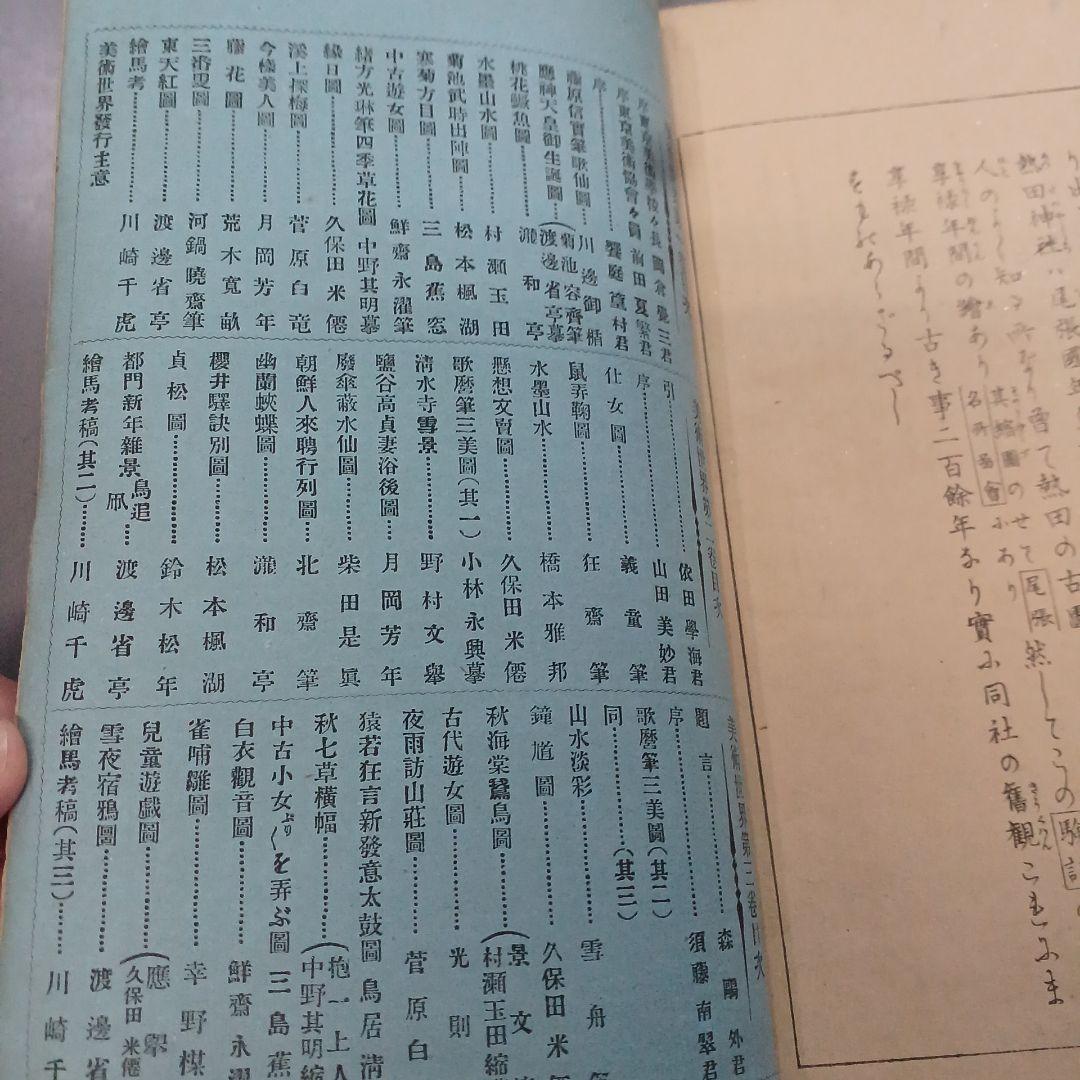 序東京美術協會々員 前田夏繁君
序 饗庭篁村君
藤原信實筆歌仙圖 川邊御楯
應神天皇御生誕圖 (菊池容齋筆 渡邊省亭摹
桃花鱖魚圖 瀧和亭
水墨山水圖 村瀬玉田
菊池武時出陣圖 松本楓湖
寒菊方目圖 三島蕉窓
中古遊女圖 鮮齋永濯筆
緒方光琳筆四季草花圖 中野其明摹
縁日圖 久保田米僊
溪上探梅圖 菅原白竜
今樣美人圖 月岡芳年
藤花圖 荒木寛畝
三番叟圖 河鍋曉齋筆
東天紅圖 渡邊省亭
繪馬考 川崎千虎
美術世界發行主意
引 依田學海君
序 山田美妙君
仕女圖 義童筆
鼠弄鞠圖 狂齋筆
水墨山水 橋本雅邦
懸想文賣圖 久保田米僊
歌麿筆三美圖(其一) 小林永興摹
淸水寺雪景 野村文擧
鹽谷高貞妻浴後圖 月岡芳年
廢傘蔽水仙圖 柴田是眞
朝鮮人來聘行列圖 北齋筆
幽蘭蛺蝶圖 瀧和亭
櫻井驛訣別圖 松本楓湖
貞松圖 鈴木松年
都門新年雜景 鳥追 凧 渡邊省亭
繪馬考稿(其二) 川崎千虎
美術世界第三卷目次
題言 森鷗外君
序 須藤南翠君
歌麿筆三美圖(其二)
同(其三)
山水淡彩 雪舟
鐘馗圖 久保田米
秋海棠鷄鳥圖 (景文 村瀬玉田縮
古代遊女圖 光則
夜雨訪山莊圖 菅原白
猿若狂言新發意太鼓圖 鳥居淸
秋七草橫幅 (抱一上人 中野其明縮
中古小女ぶりぶりを弄ぶ圖 三島蕉
白衣觀音圖 鮮齋永濯
雀哺雛圖 幸野楳
兒童遊戲圖 (應擧 久保田米僊
雪夜宿鴉圖 渡邊省
繪馬考稿(其三) 川崎千
熱田神社ハ尾張國
人のよく知る所なり曾て熱田の古圖
享祿年間の繪あり名所圖會ふあり尾張
享祿年間より古き事二百餘年なり實ふ同社の舊觀これふま
をものあらざるべし